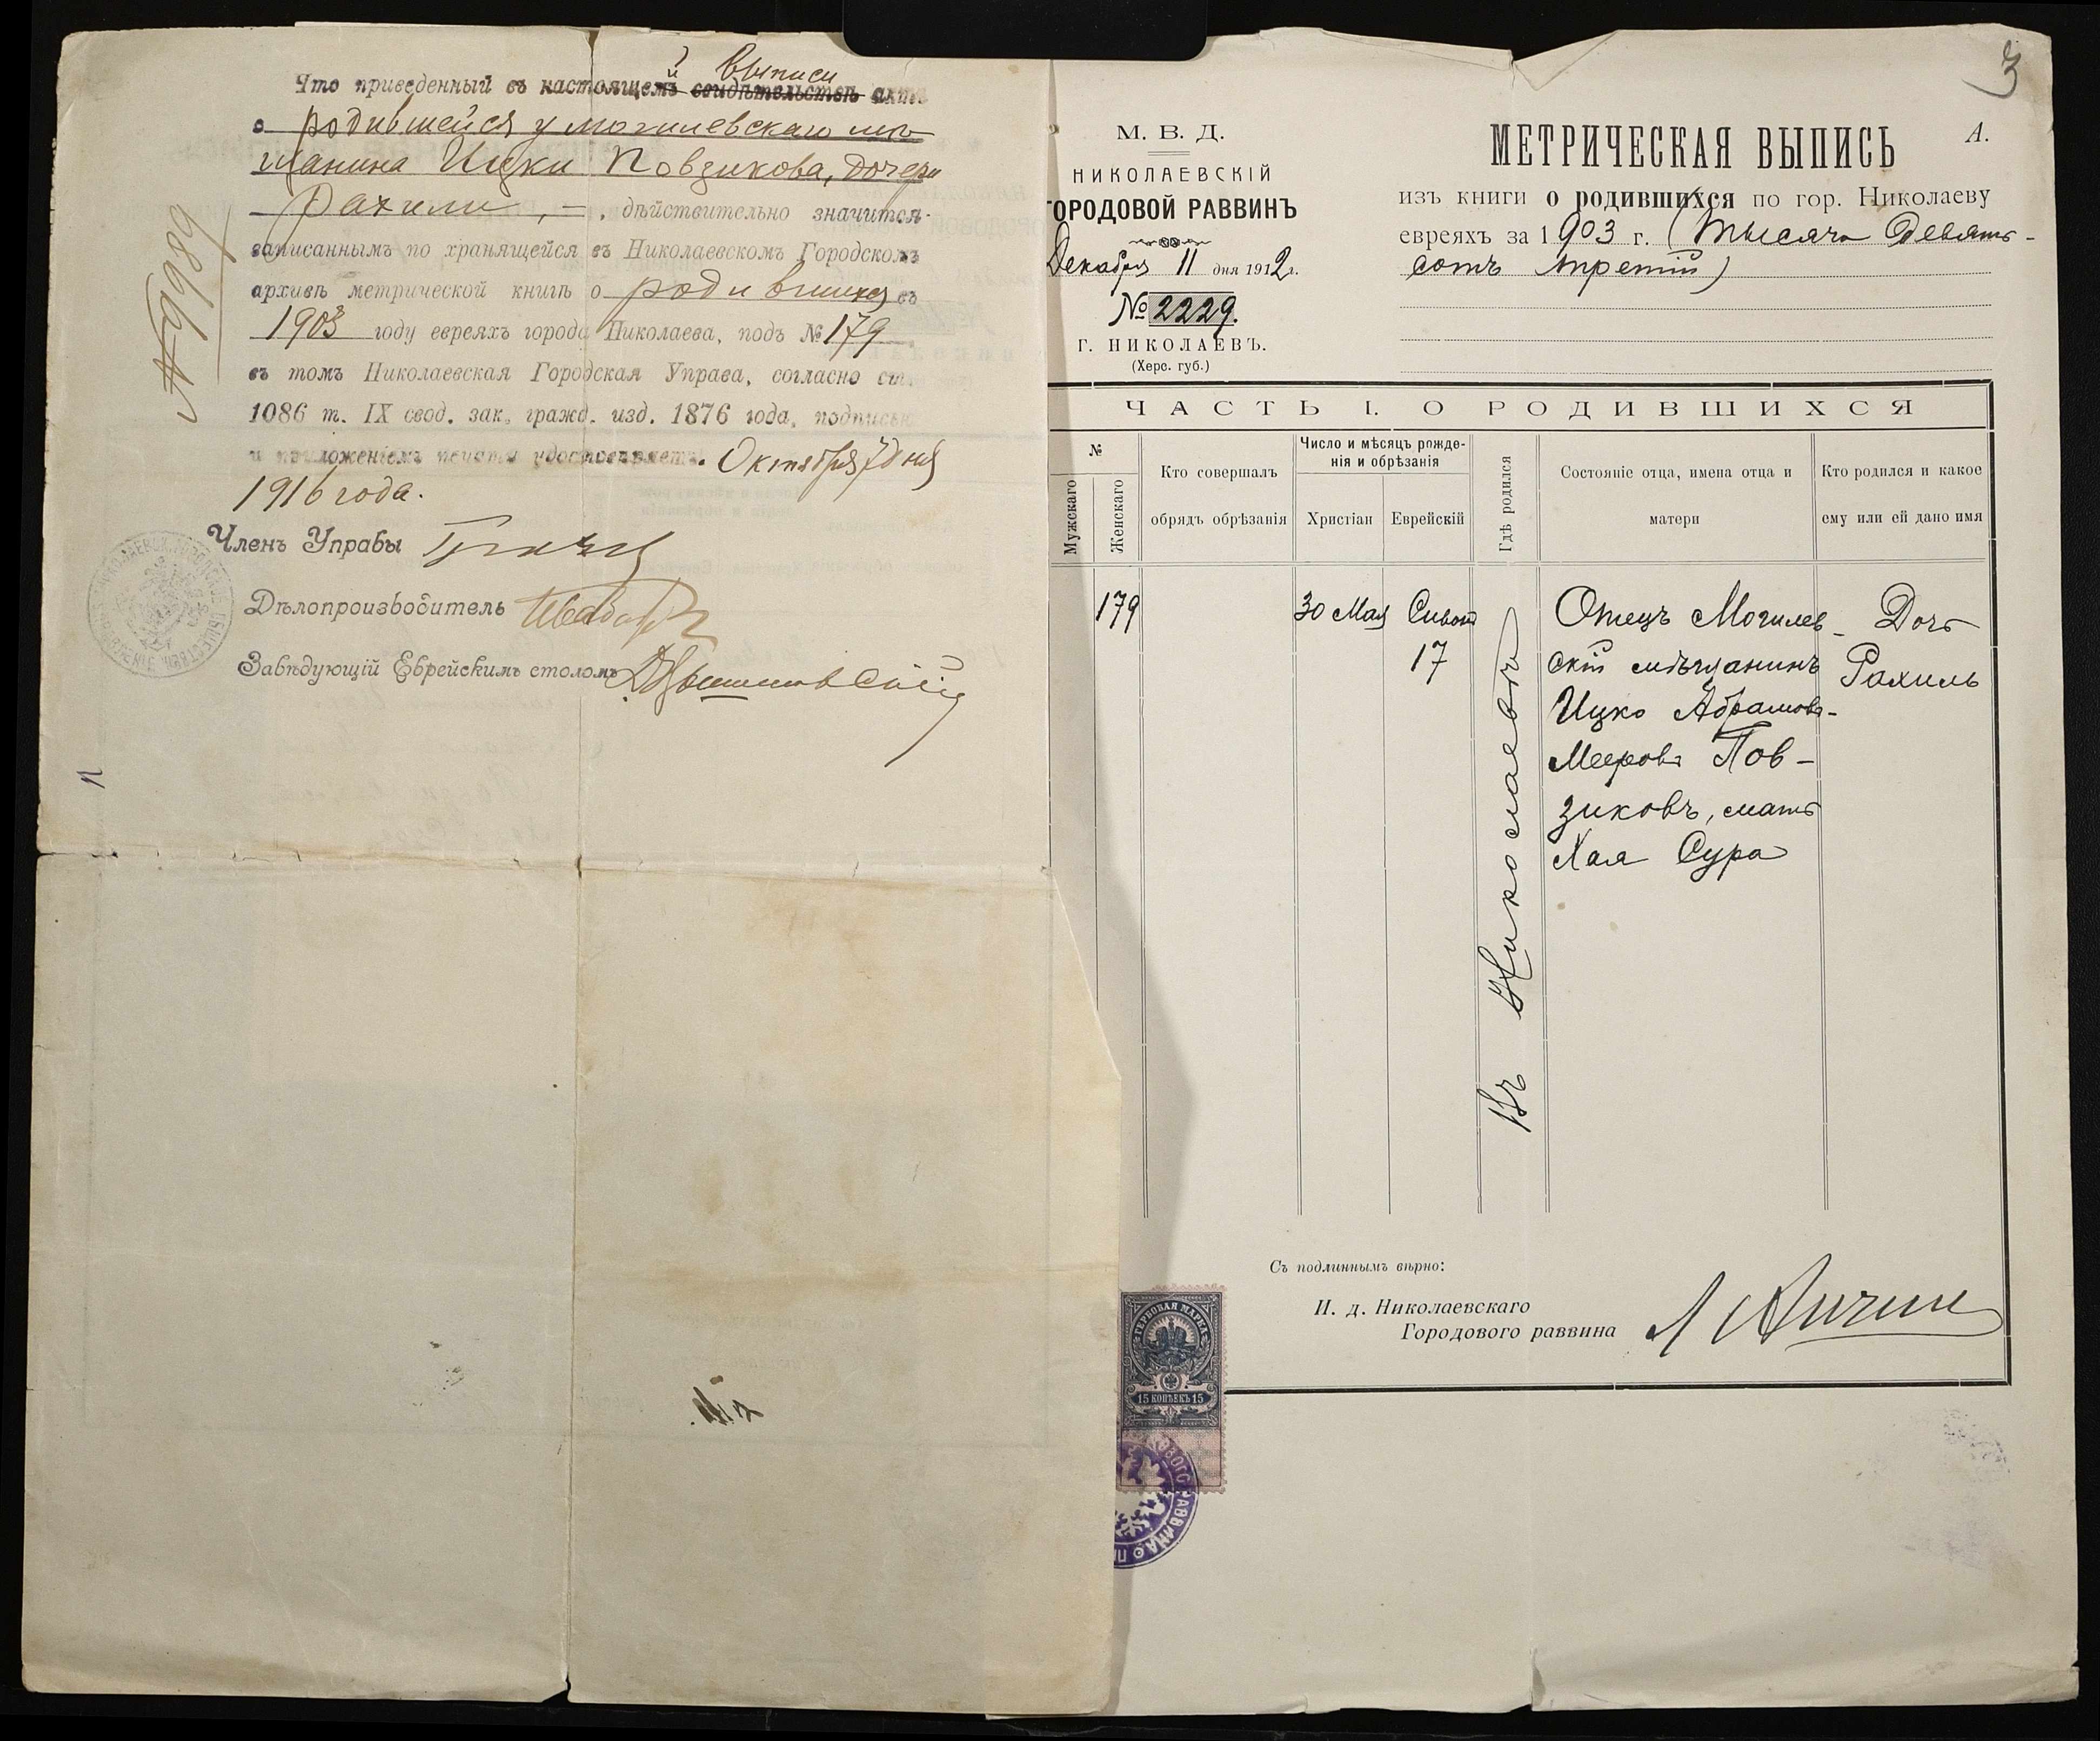 Что приведенный въ настоящемъ свидѣтельствѣ актъ
й выписи
о родившейся у могилевскаго мѣ-
щанина Ицки Повзикова, дочери
Рахили, —, дѣйствительно значится
записаннымъ по хранящейся въ Николаевскомъ Городскомъ
архивѣ метрической книгѣ о родившихся въ
1903 году евреяхъ города Николаева, подъ № 179
въ томъ Николаевская Городская Управа, согласно ст.
1086 т. IX свод. зак. гражд. изд. 1876 года, подписью
и приложеніемъ печати удостовѣряетъ. Октября 7 дня
1916 года.
Членъ Управы
Дѣлопроизводитель
Завѣдующій Еврейскимъ столомъ
№ 9689
3
М. В. Д.
НИКОЛАЕВСКІЙ
ГОРОДОВОЙ РАВВИНЪ
Декабря 11 дня 1912 г.
№ 2229.
Г. НИКОЛАЕВЪ.
(Херс. губ.)
МЕТРИЧЕСКАЯ ВЫПИСЬ
А.
изъ книги о родившихся по гор. Николаеву
евреяхъ за 1903 г. (Тысяча девять-
сотъ третій)
ЧАСТЬ I. О РОДИВШИХСЯ
№
Мужскаго
Женскаго
Кто совершалъ
обрядъ обрѣзанія
Число и мѣсяцъ рожде-
нія и обрѣзанія
Христіан
Еврейскій
Гдѣ родился
Состояніе отца, имена отца и
матери
Кто родился и какое
ему или ей дано имя
179
30 Мая
Сивон
17
Въ Николаевѣ
Отецъ Могилев-
скій мѣщанинъ
Ицко Абрамовъ-
Мееровъ Пов-
зиковъ, мать
Хая Сура
Дочь
Рахиль
Съ подлиннымъ вѣрно:
И. д. Николаевскаго
Городового раввина
ГЕРБОВАЯ МАРКА
15 КОПѢЕКЪ 15